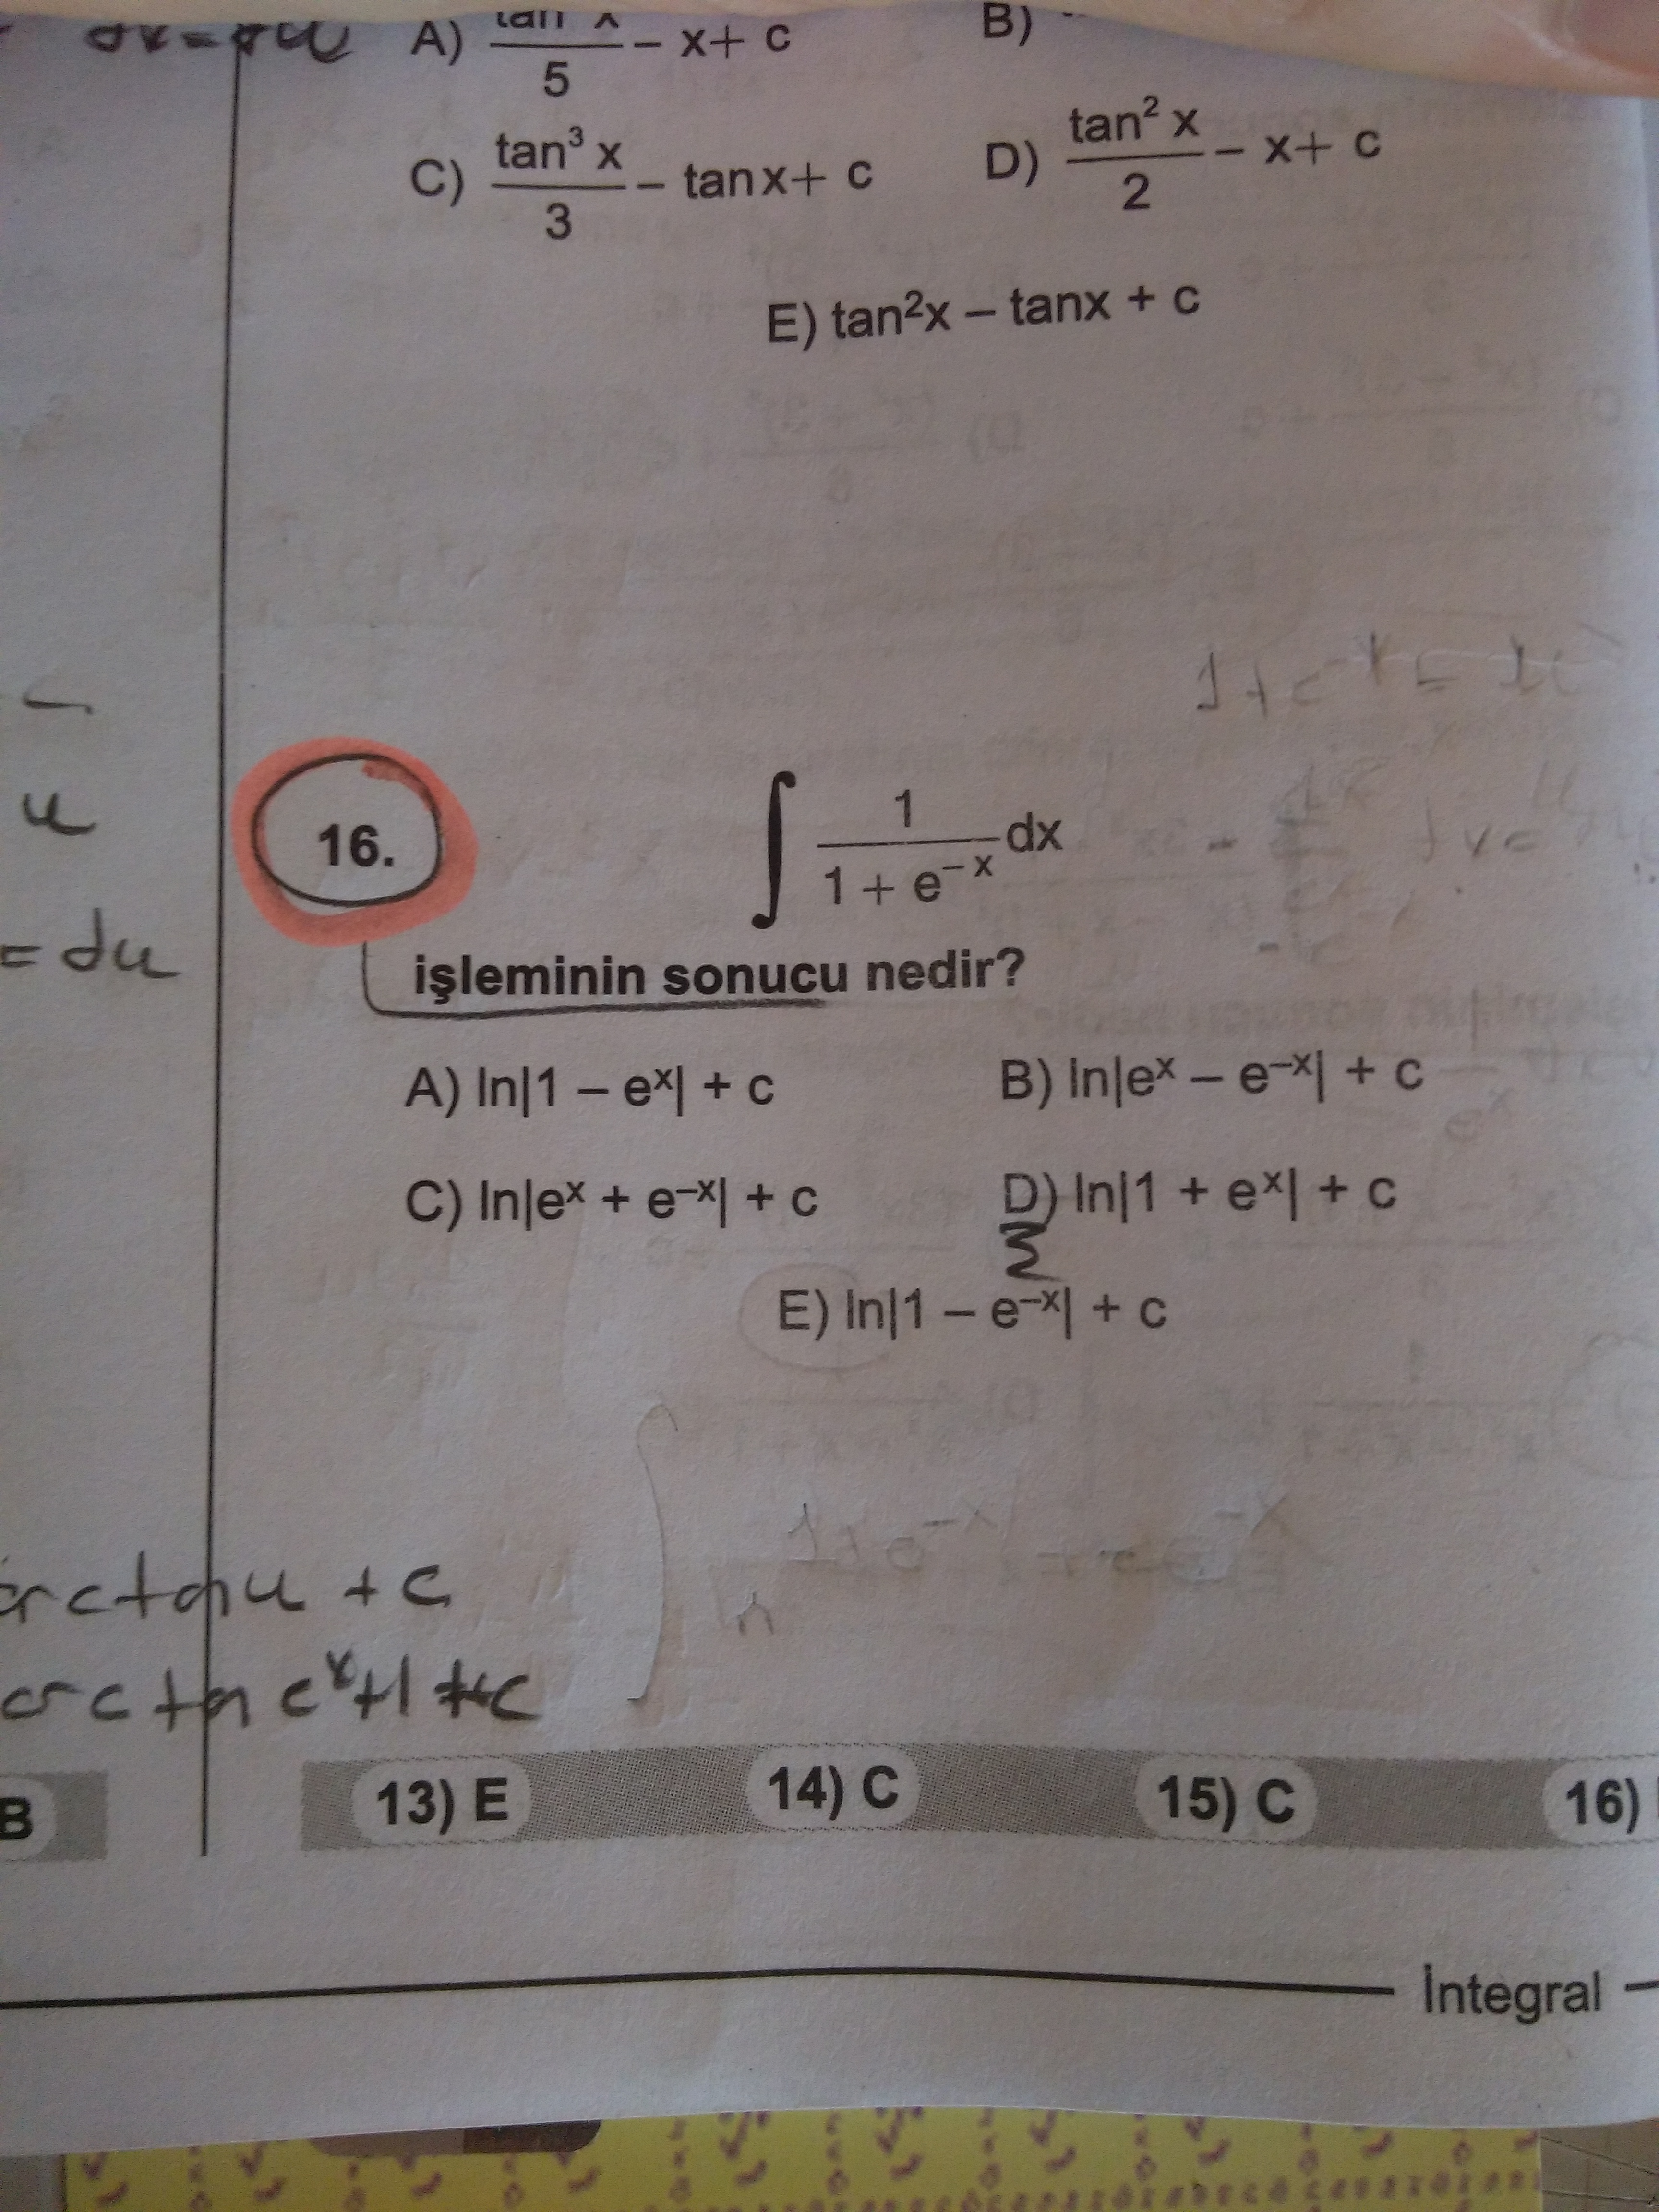 dx = du
A) tan x / 5 − x + c
B)
C) tan³ x / 3 − tanx + c
D) tan² x / 2 − x + c
E) tan²x − tanx + c
u
= du
16.
∫ 1 / (1 + e⁻ˣ) dx
işleminin sonucu nedir?
A) ln|1 − eˣ| + c
B) ln|eˣ − e⁻ˣ| + c
C) ln|eˣ + e⁻ˣ| + c
D) ln|1 + eˣ| + c
E) ln|1 − e⁻ˣ| + c
arctan u + c
arctan eˣ+1 + c
B
13) E
14) C
15) C
16)
İntegral